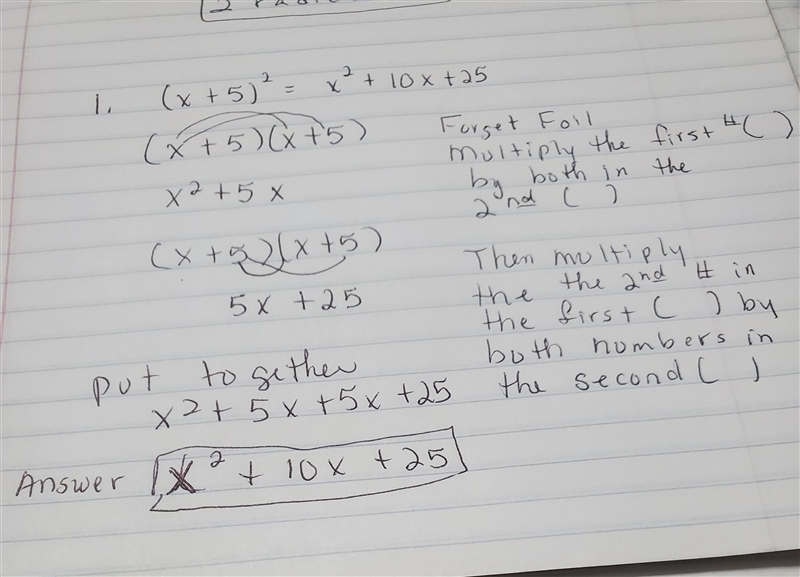 1. (x + 5)² = x² + 10x + 25
(x + 5)(x + 5)
x² + 5x
(x + 5)(x + 5)
5x + 25
put together
x² + 5x + 5x + 25
Answer x² + 10x + 25
Forget Foil
multiply the first # ( )
by both in the
2nd ( )
Then multiply
the the 2nd # in
the first ( ) by
both numbers in
the second ( )